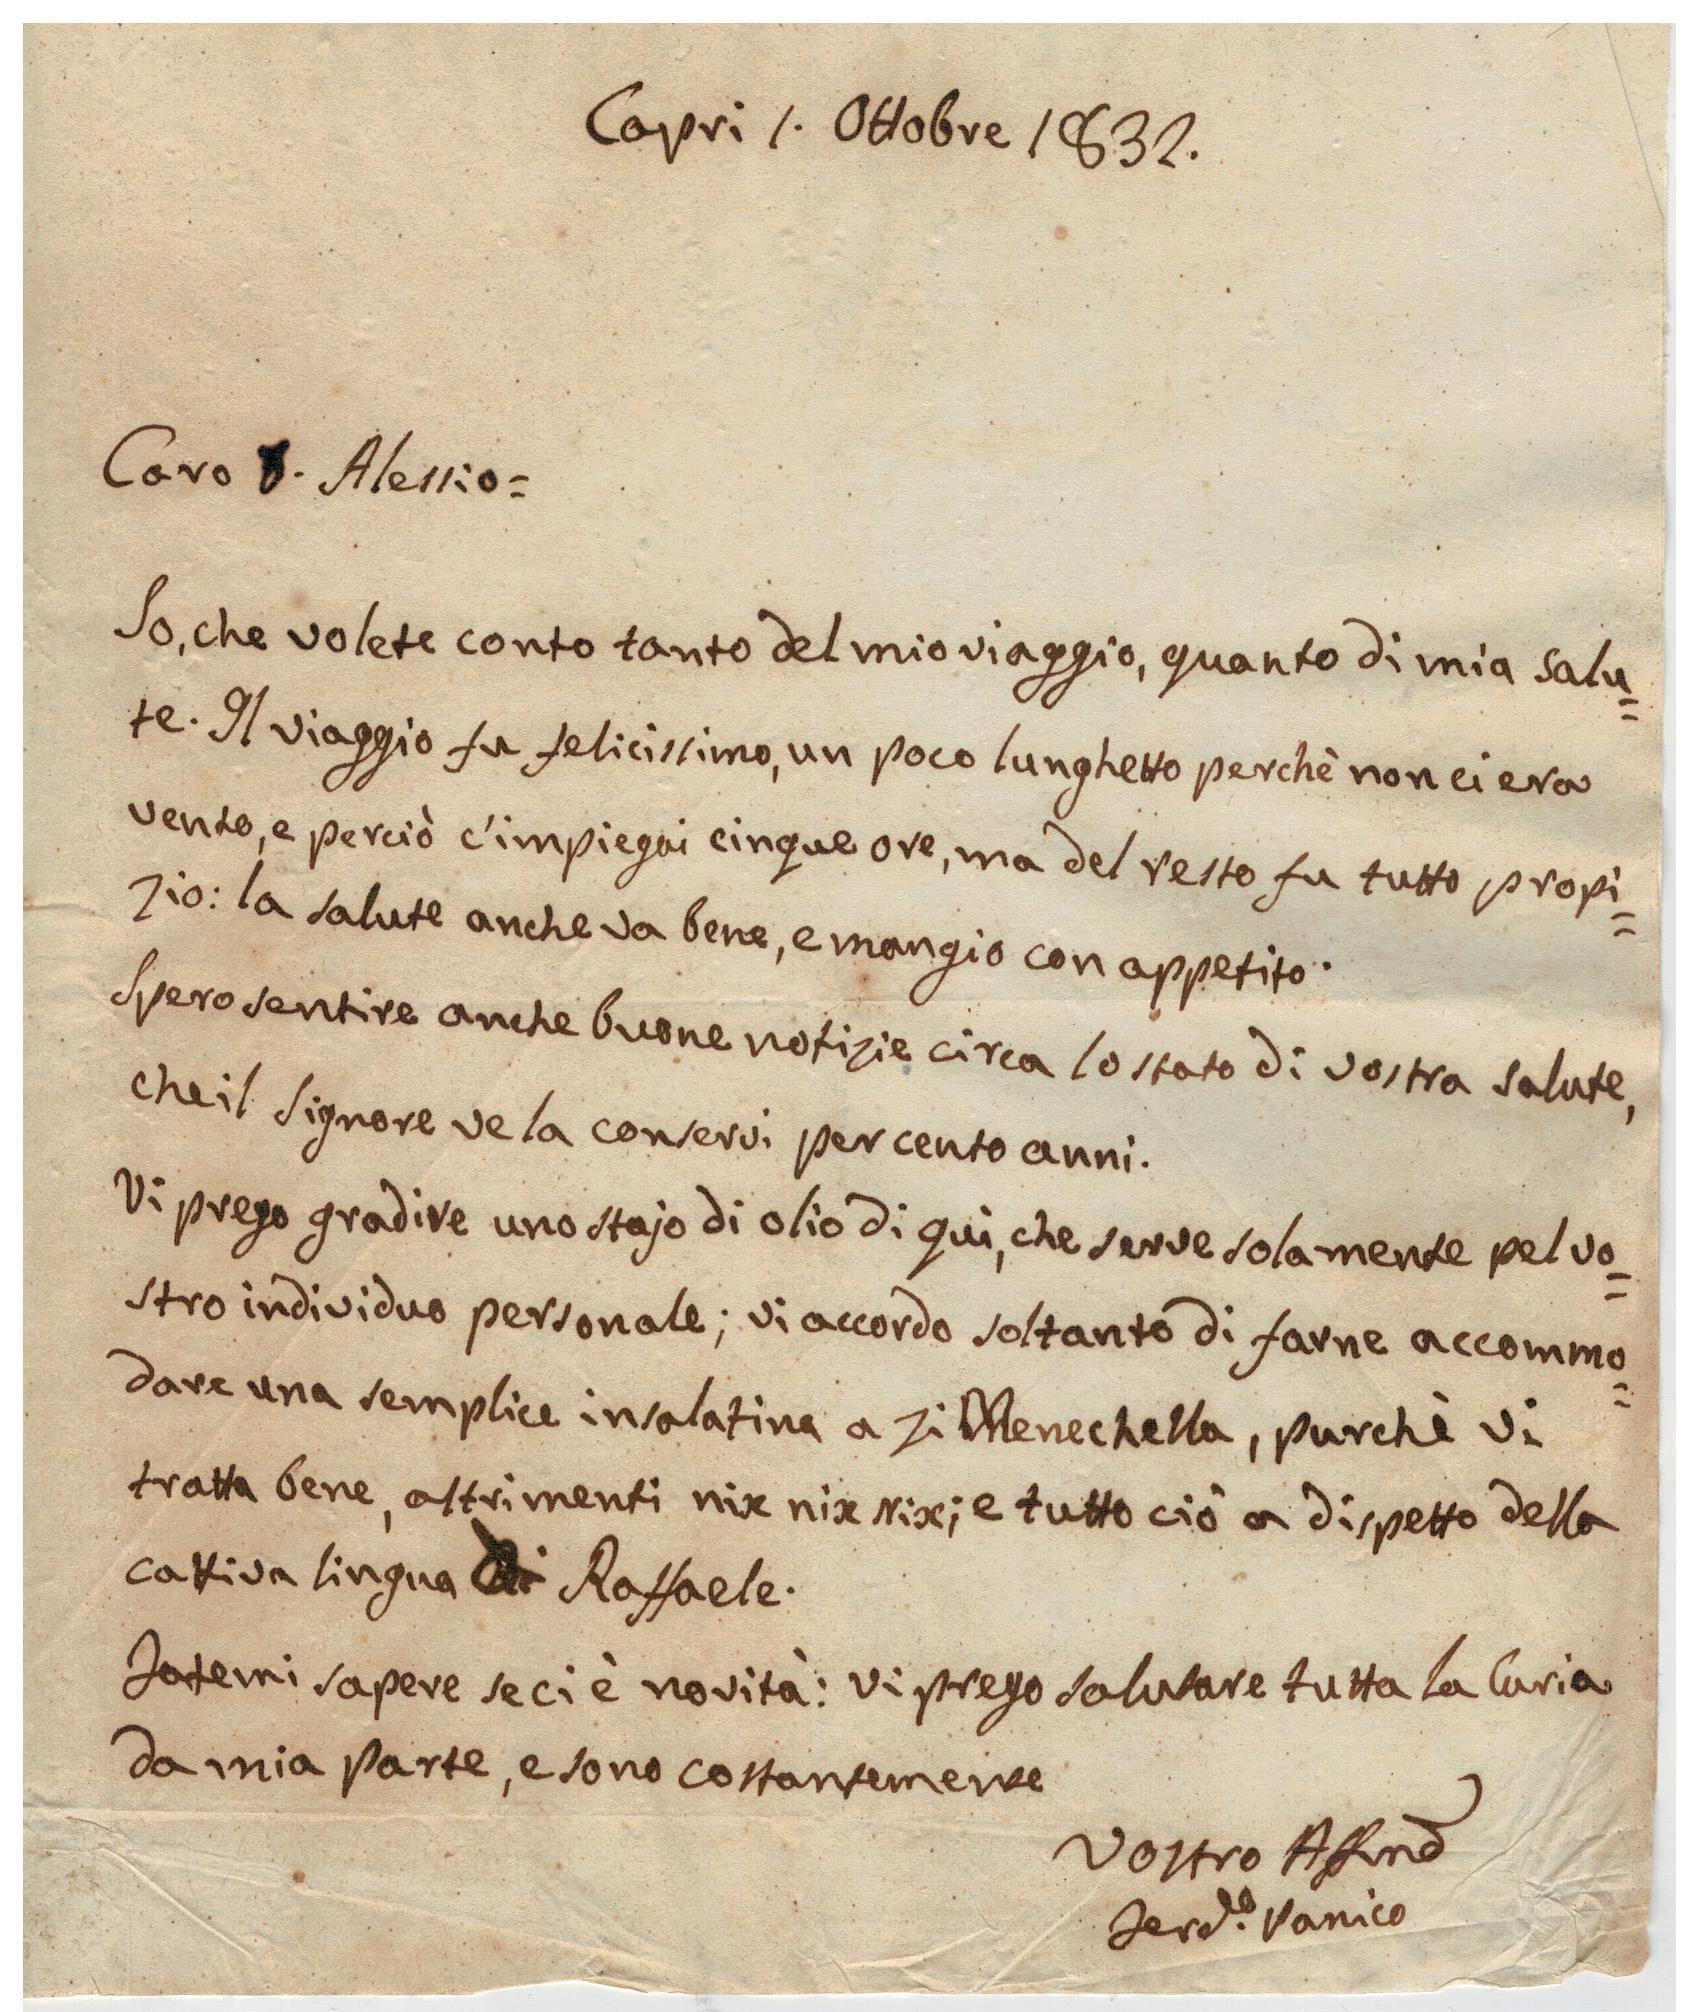 Capri 1. Ottobre 1832.
Caro D. Alessio=
So, che volete conto tanto del mio viaggio, quanto di mia salu=
te. Il viaggio fu felicissimo, un poco lunghetto perchè non ci era
vento, e perciò c'impiegai cinque ore, ma del resto fu tutto propi=
zio: la salute anche va bene, e mangio con appetito.
Spero sentire anche buone notizie circa lo stato di vostra salute,
che il Signore ve la conservi per cento anni.
Vi prego gradire uno stajo di olio di qui, che serve solamente pel vo=
stro individuo personale; vi accordo soltanto di farne accommo=
dare una semplice insalatina a zi Menechella, purchè vi
tratta bene, altrimenti nix nix nix; e tutto ciò a dispetto della
cattiva lingua di Raffaele.
Fatemi sapere se ci è novità: vi prego salutare tutta la Curia
da mia parte, e sono costantemente
Vostro
Ferd.do Panico